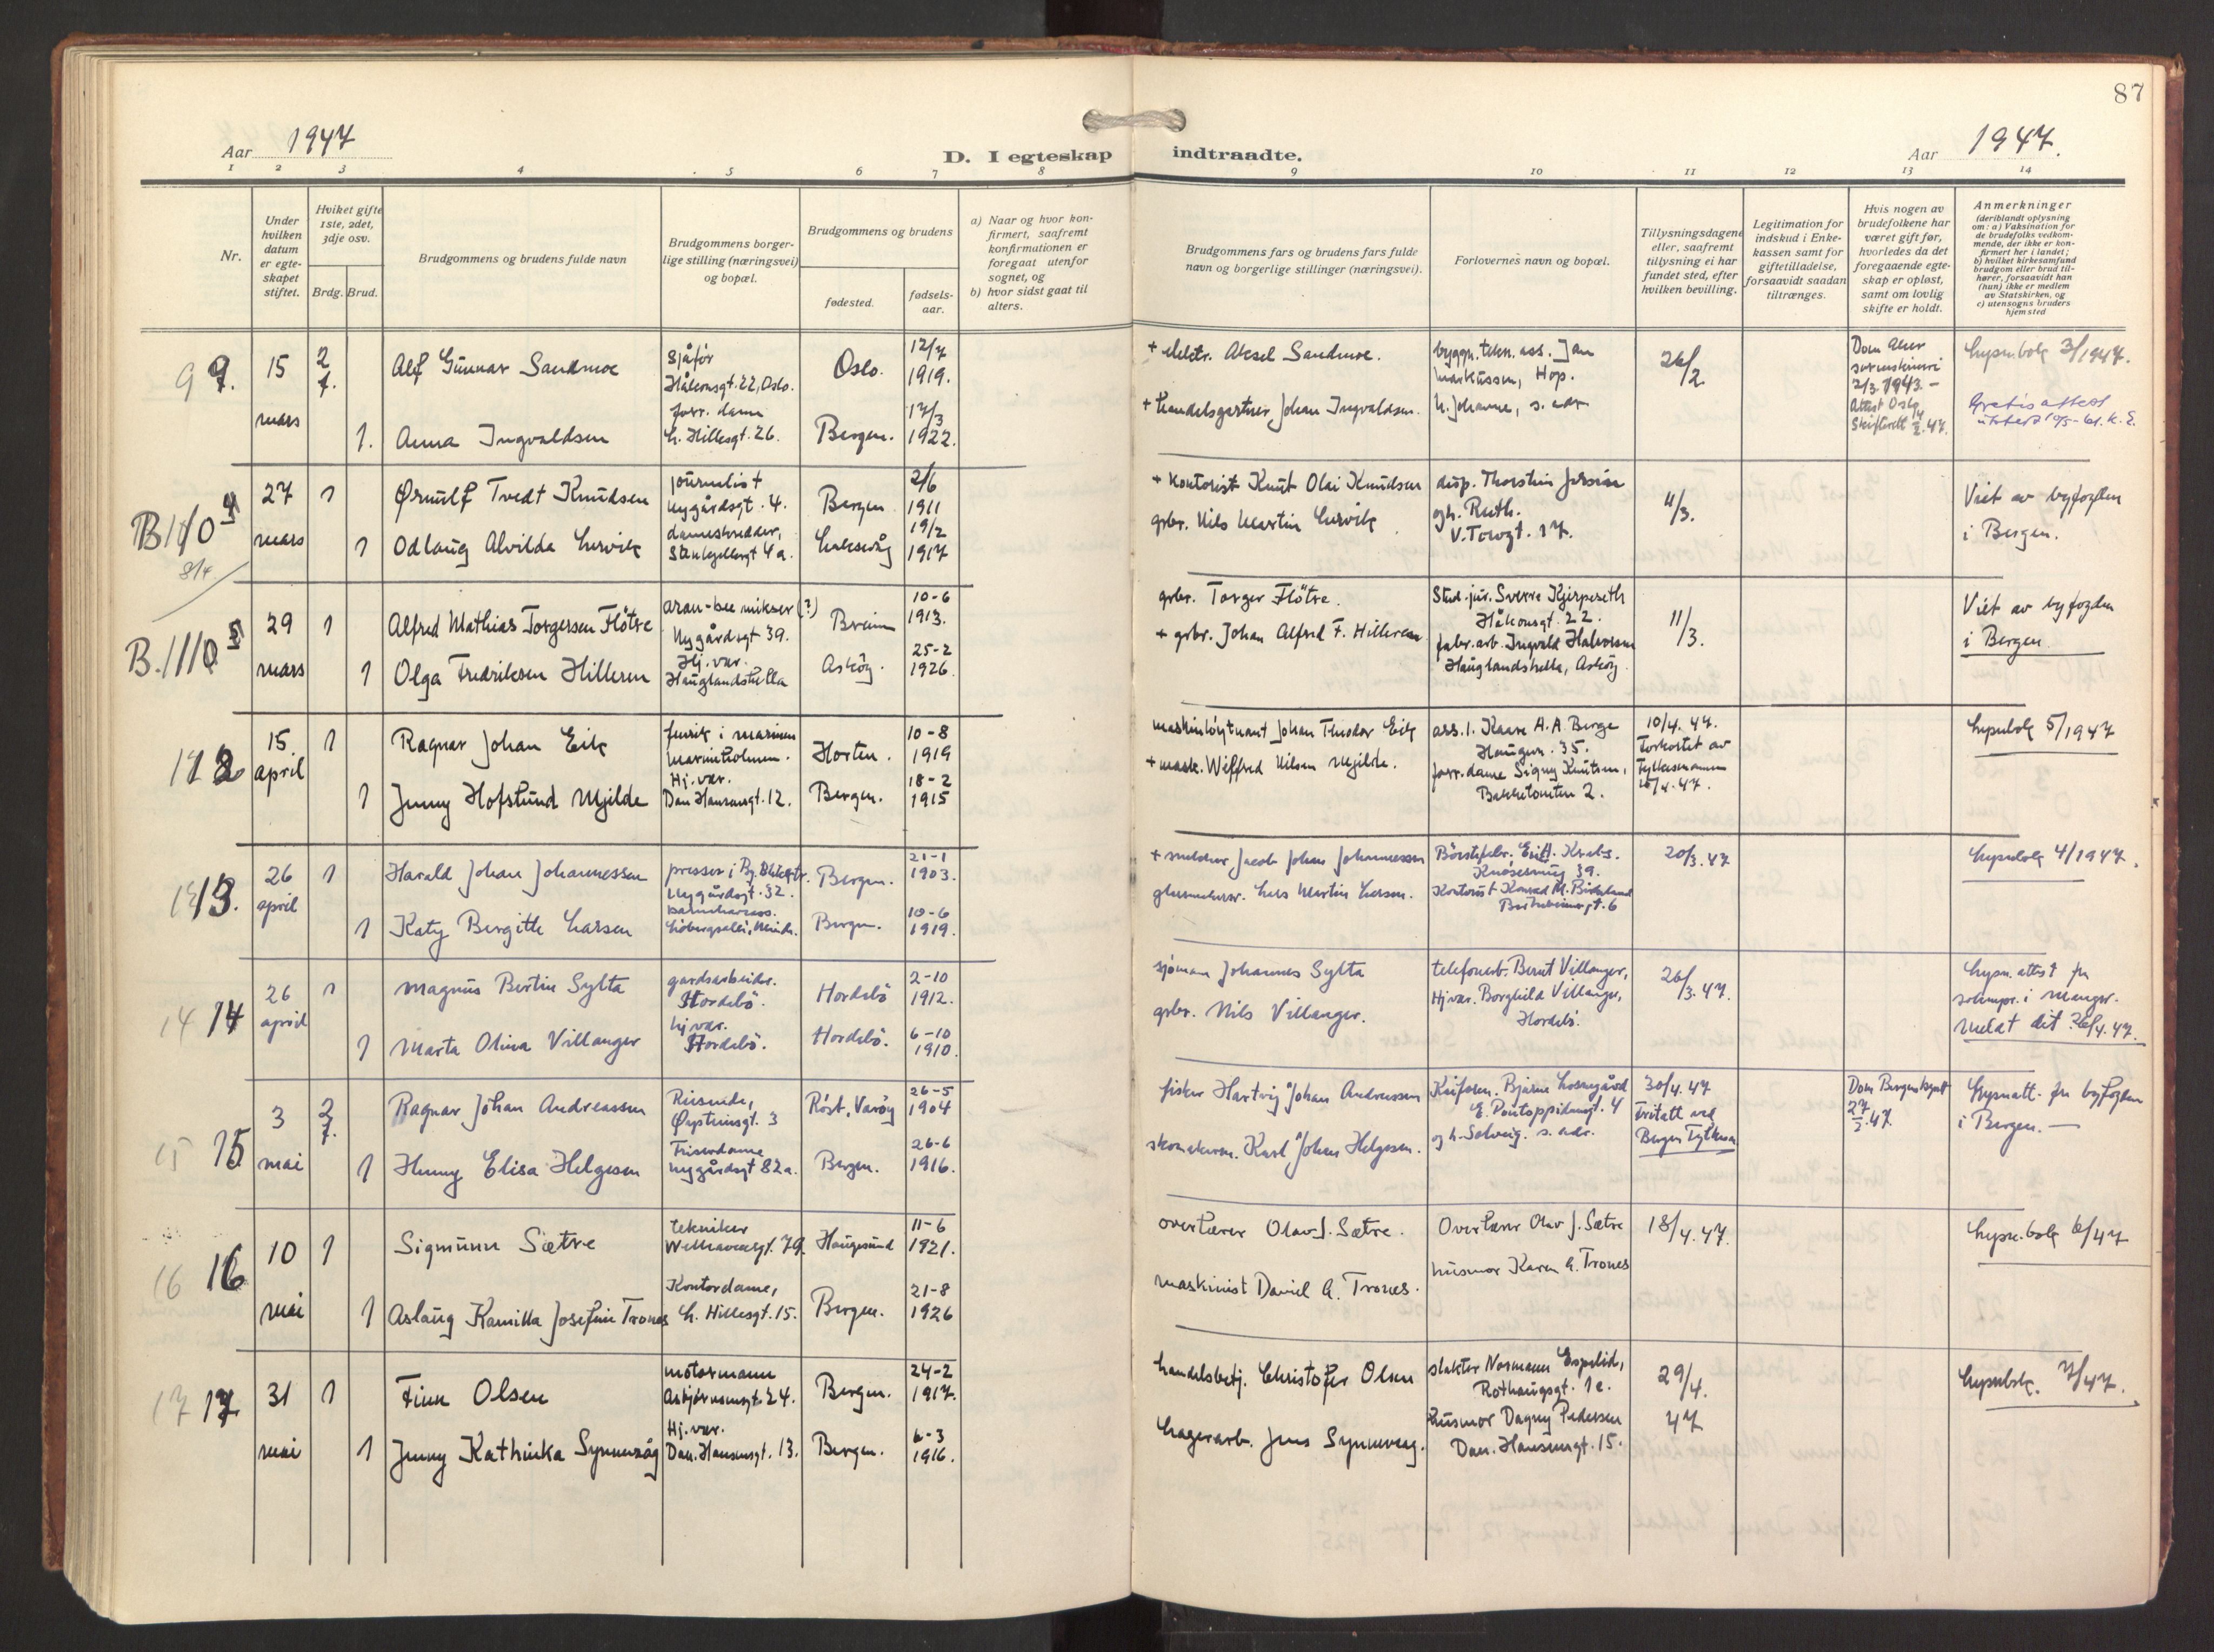 87
Aar 1947
D. I egteskap indtraadte.
Aar 1947.
1 2 3 4 5 6 7 8 9 10 11 12 13 14
Nr.
Under hvilken datum er egteskapet stiftet.
Hviket gifte 1ste, 2det, 3dje osv.
Brdg. Brud.
Brudgommens og brudens fulde navn
Brudgommens borgerlige stilling (næringsvei) og bopæl.
Brudgommens og brudens
fødested.
fødselsaar.
a) Naar og hvor konfirmert, saafremt konfirmationen er foregaat utenfor sognet, og
b) hvor sidst gaat til alters.
Brudgommens fars og brudens fars fulde navn og borgerlige stillinger (næringsvei).
Forlovernes navn og bopæl.
Tillysningsdagene eller, saafremt tillysning ei har fundet sted, efter hvilken bevilling.
Legitimation for indskud i Enkekassen samt for giftetilladelse, forsaavidt saadan tiltrænges.
Hvis nogen av brudefolkene har været gift før, hvorledes da det foregaaende egteskap er opløst, samt om lovlig skifte er holdt.
Anmerkninger
(deriblandt oplysning om: a) Vaksination for de brudefolks vedkommende, der ikke er konfirmert her i landet; b) hvilket kirkesamfund brudgom eller brud tilhører, forsaavidt han (hun) ikke er medlem av Statskirken, og c) utensogns bruders hjemsted
9 9. 15 mars 2 f. Alf Gunnar Sandmoe Sjåfør Håkonsgt. 22, Oslo. Oslo. 12/7 1919.
+ elektr. Aksel Sandmoe. byggn. tekn. ass. Jan Markussen, Hop. 26/2. 2/3 1943. - Lysn.bok 3/1947.
1. Anna Ingvaldsen forr. dame L. Hillesgt. 26. Bergen. 17/3 1922.
+ Handelsgartner Johan Ingvaldsen. h. Johanne, s. adr Attest Oslo Skifterett Gratis attest utstedt
B 10 8/4 27 mars 1 Ørnulf Tvedt Knudsen journalist Nygårdsgt. 4. Bergen 2/6 1911
+ kontorist Knut Olai Knudsen disp. Thorstein 4/3. Viet av byfogden
1 Odlaug Alvilda Lervik dameskredder, 4a. Laksevåg 19/2 1917
gbr. Nils Martin Lervik og h. Ruth. V. Torvgt. 17. i Bergen.
B. 11 29 mars 1 Alfred Mathias Torgersen Flötre mikser (?) Nygårdsgt 39. Breim 10-6 1913.
gbr. Torger Flötre. Stud. jur. Sverre Kjerpeseth Håkonsgt. 22. 11/3. Viet av byfogden
1 Olga Fredriksen Hilleren Hj. vær. Hauglandshella Asköy. 25-2 1926.
+ gbr. Johan Alfred F. Hilleren fabr. arb. Ingvald Halvorsen Hauglandshella, Asköy. i Bergen.
12 15. april 1 Ragnar Johan Eik fenrik i marinen Marineholmen. Horten. 10-8 1919
maskinløytnant Johan Theodor Eik ass. l. Kaare A. A. Berge Haugen. 35. 10/4. 47. Forkortet av Fylkesmannen Lysnbok 5/1947
1 Jenny Hofslund Mjilde Hj. var. Dan. Hansensgt. 12. Bergen. 18-2 1915
+ mask. Wilfred Nilsen Mjilde. forr. dame Signy Knutsen, Bakketomten 2. 15/4. 47.
13. 26 april 1 Harald Johan Johannessen presser i Nygårdsgt. 32. Bergen. 21-1 1903.
+ snekker Jacob Johan Johannessen 39. 20/3. 47 Lysnbok 4/1947.
1 Katy Bergitte Larsen Bergen. 10-6 1919.
Lars Martin Larsen. Kontorist Konrad M. 6
14 14 26 april 1 Magnus Bertin Sylta gardsarbeider. Hordabö. Hordabö 2-10 1912.
sjömann Johannes Sylta telefonarb. Bernt Villanger, 26/3. 47. Lysn. attest fra
1 Marta Olina Villanger hj. vær. Hordabö. Hordabö. 6-10 1910.
gbr. Nils Villanger. Hj. vær. Borghild Villanger, Hordabö. soknepr. i Manger. Meldt dit 26/4. 47.
15 15 3 mai 2 f. Ragnar Johan Andreassen Reisende, Øisteinsgt. 3 Röst, Væröy 26-5 1904
fisker Hartvig Johan Andreassen Bjarne E. Pontoppidansgt. 4 30/4. 47 Fritatt ved Dom Bergens byrett 27/2. 47. Lysnatt. fra byfogden
1 Henny Elisa Helgesen Friserdame Nygårdsgt 82a. Bergen. 26-6 1916.
skomakerm. Karl Johan Helgesen. og h. Solveig. s. adr. Bergen Fylkesm i Bergen. —
16 16 10 mai 1 Sigmunn Sætre tekniker Welhavensgt. 79. Haugesund 11-6 1921.
overlærer Olav J. Sætre. Overlærer Olav J. Sætre 18/4. 47. Lysn. bok 6/47
1 Aslaug Kamilla Josefine Trones Kontordame, L. Hillesgt. 15. Bergen. 21-8 1926
maskinist Daniel A. Trones. husmor Karen A. Trones
17 17. 31 mai 1 Finn Olsen motormann Asbjørnsensgt. 24. Bergen. 24-2 1917.
handelsbetj. Christofer Olsen slakter Normann Espelid, Rothaugsgt. 1e. 29/4. 47 Lysnbok. 7/47.
1 Jenny Kathinka Synnevåg Hj. vær. Dan. Hansensgt. 13. Bergen. 6-3 1916.
lagerarb. Jens Synnevaag. Husmor Dagny Pedersen Dan. Hansensgt. 15.